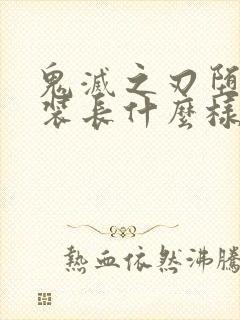 鬼滅之刃墮
裝長什麼樣
熱血依然沸騰